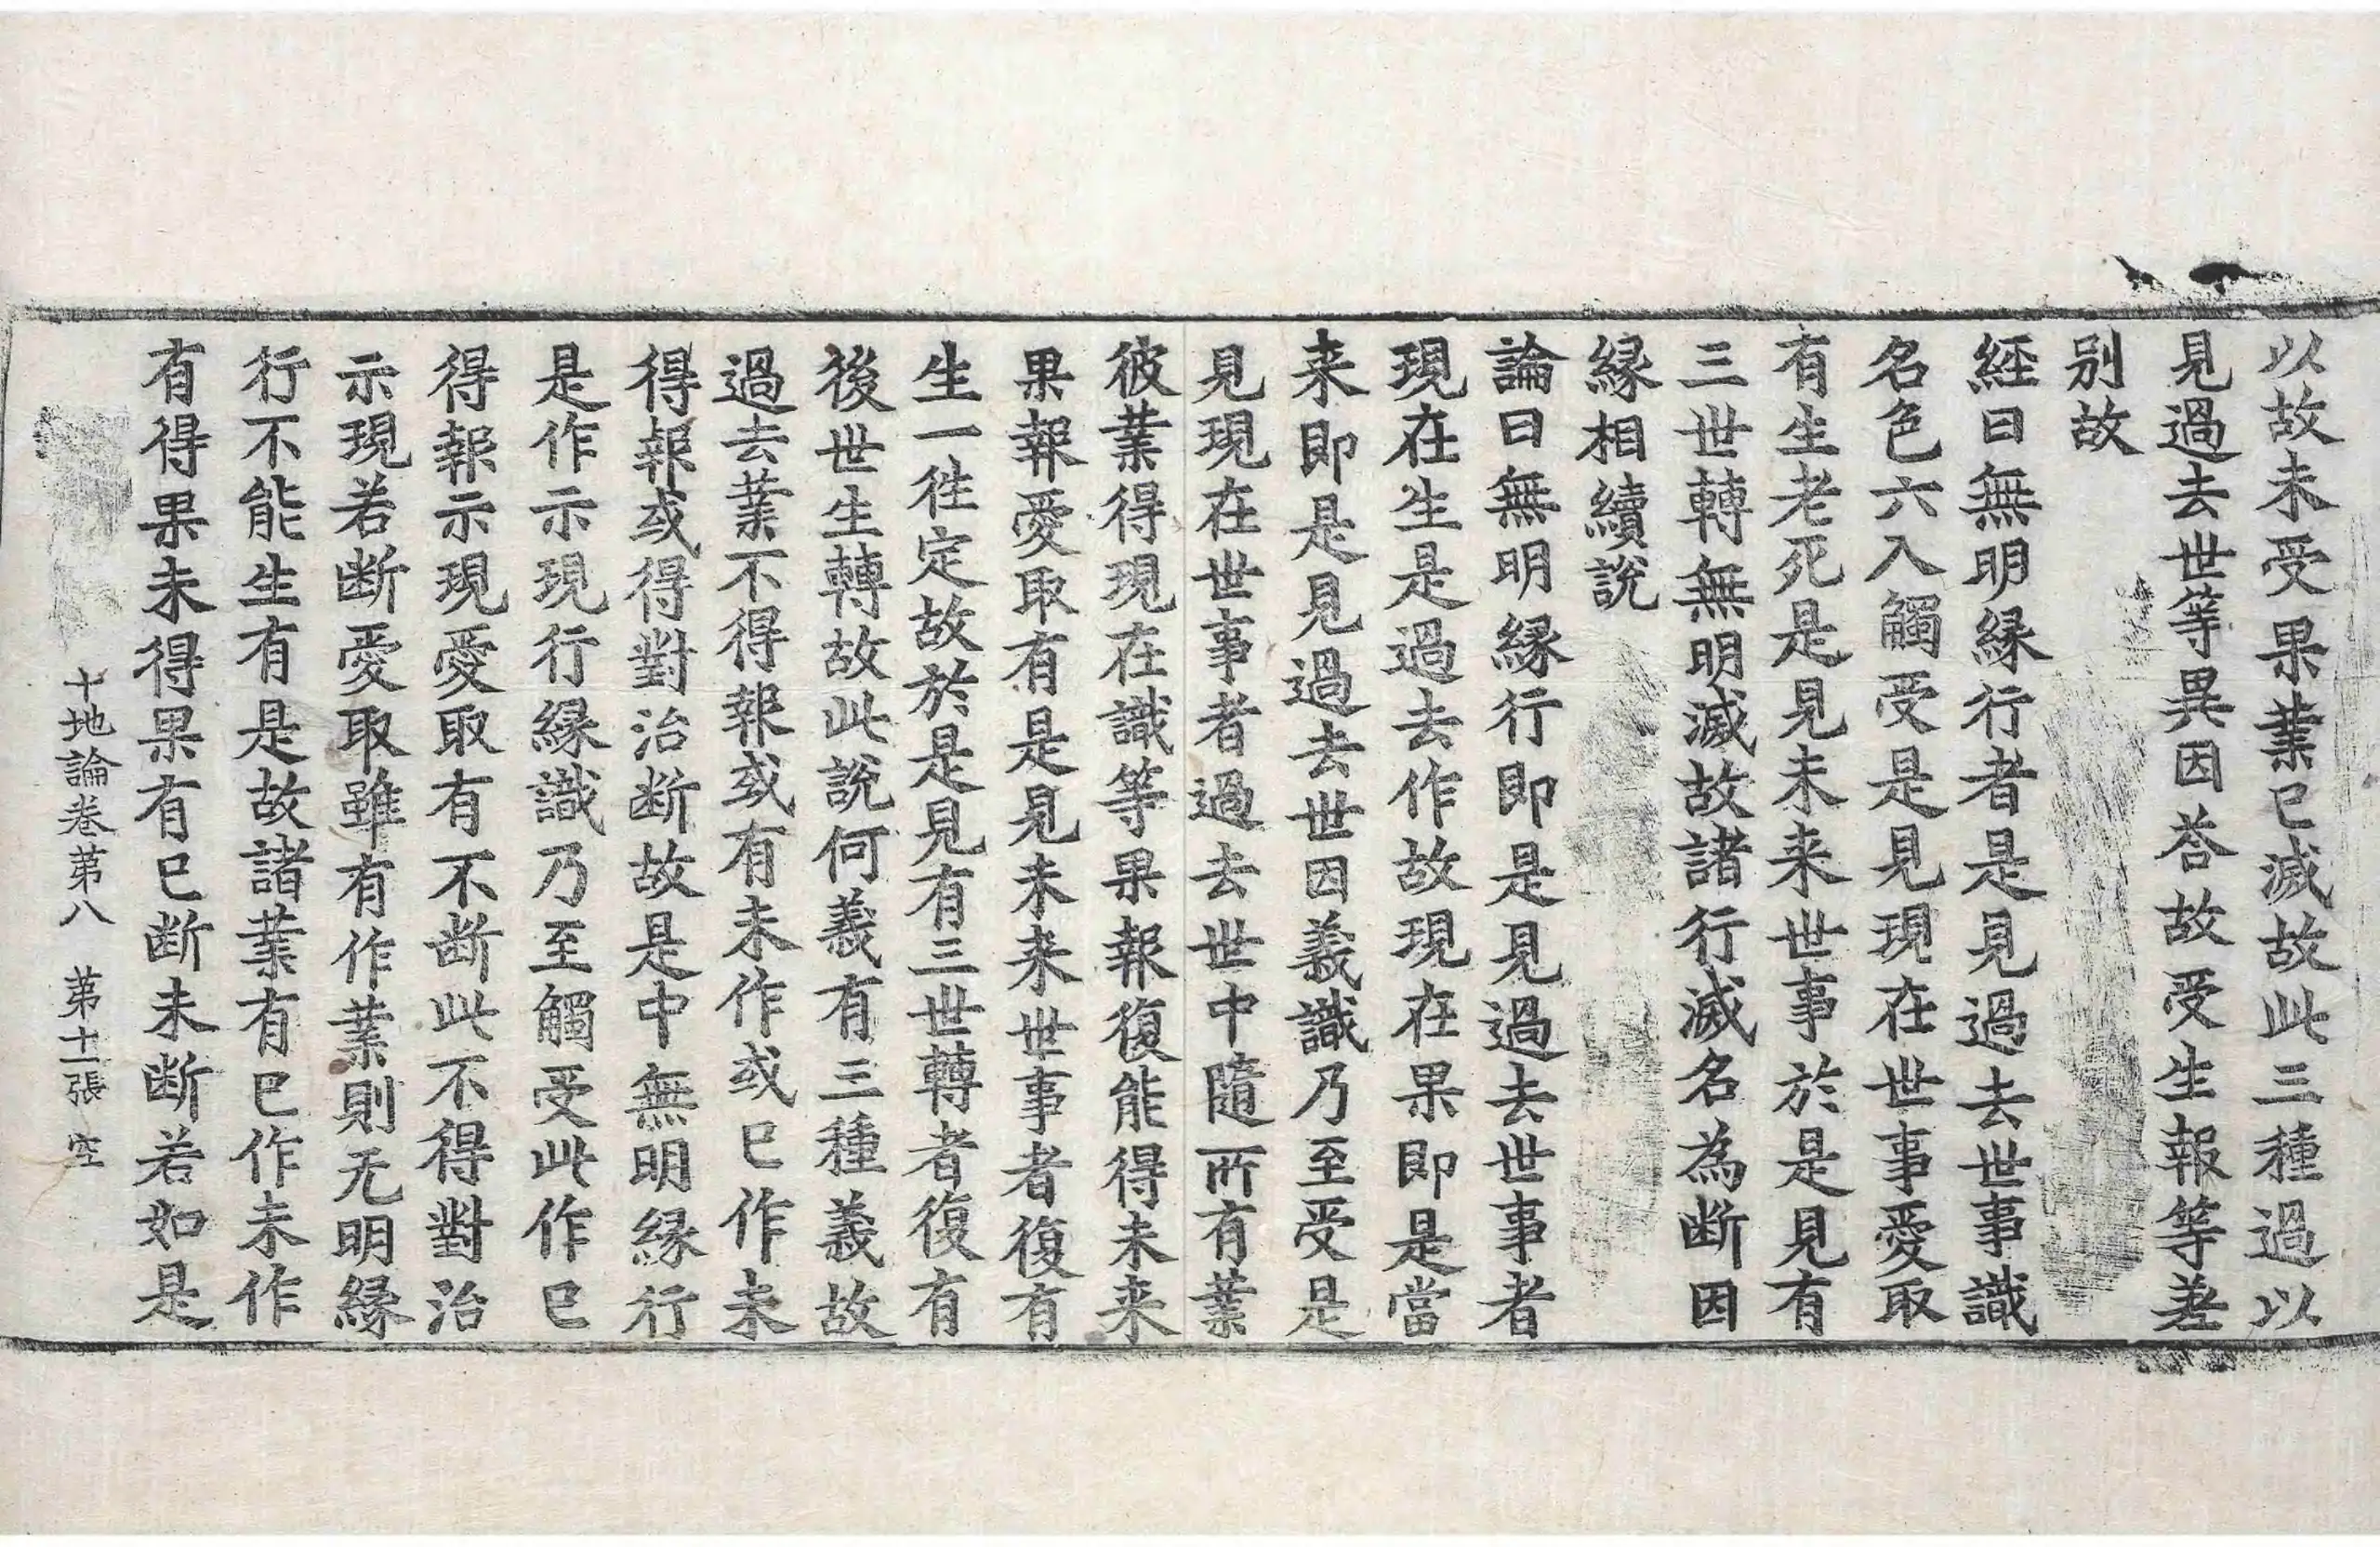 以故未受果業已滅故此三種過以
見過去世等異因荅故受生報等差
別故
経曰無明縁行者是見過去世事識
名色六入觸受是見現在世事愛取
有生老死是見未来世事於是見有
三世轉無明滅故諸行滅名為断因
縁相續說
論曰無明縁行即是見過去世事者
現在生是過去作故現在果即是當
来即是見過去世因義識乃至受是
見現在世事者過去世中隨所有業
彼業得現在識等果報復能得未来
果報愛取有是見未来世事者復有
生一徃定故於是見有三世轉者復有
後世生轉故此說何義有三種義故
過去業不得報或有未作或已作未
得報或得對治断故是中無明縁行
是作示現行縁識乃至觸受此作已
得報示現愛取有不断此不得對治
示現若断愛取雖有作業則无明縁
行不能生有是故諸業有已作未作
有得果未得果有已断未断若如是
十地論卷苐八 苐十一張 空